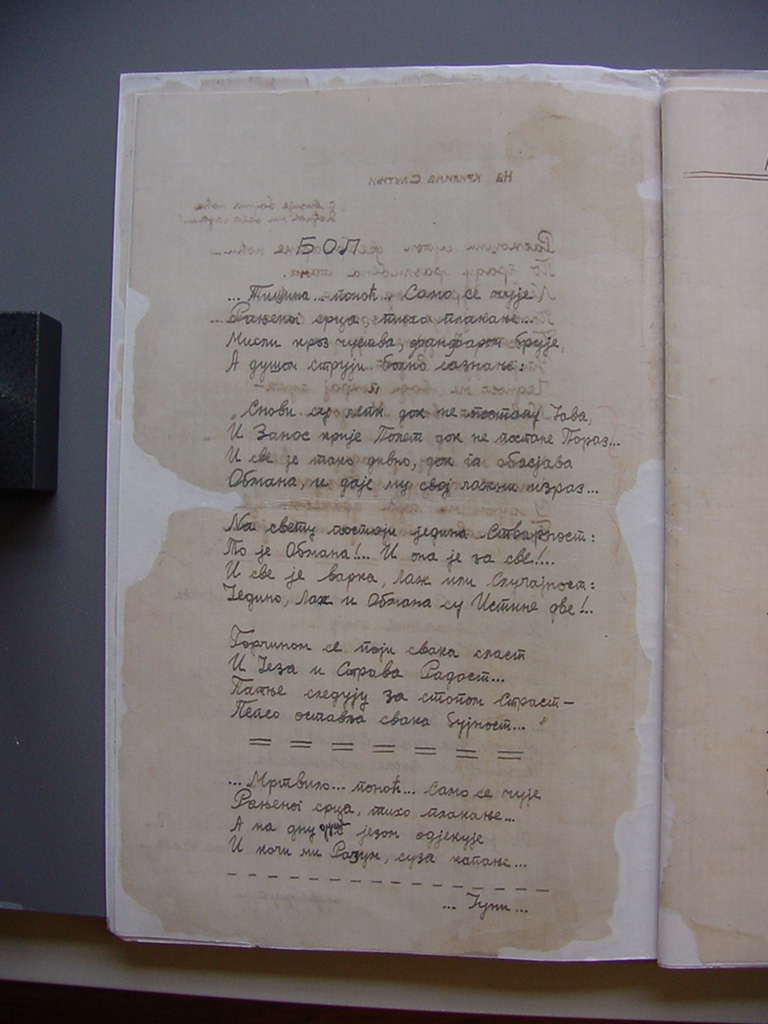 БОЛ
... Тишина... поноћ... Само се чује
Рањеног срца, тихо плакање...
Мисли кроз чувства, фанфаром брује,
А душом струји болно сазнање:
„Снови су лепи док не постану Јава,
И Занос крије Полет док не постане Пораз...
И све је тако дивно, док га обасјава
Обмана, и даје му свој лажни израз...
На свету постоји једина Стварност:
То је Обмана!.. И она је за све!...
И све је варка, Лаж или Случајност:
Једино, Лаж и Обмана су Истине две!..
Горчином се поји свака сласт
И Језа и Страва Радост...
Патње следују за стопом Страст –
Пепео оставља свака бујност..."
= = = = = = =
... Мртвило... поноћ... Само се чује
Рањеног срца, тихо плакање...
А на дну језом одјекује
И кочи ми Разум, суза капање...
... Јуни ...